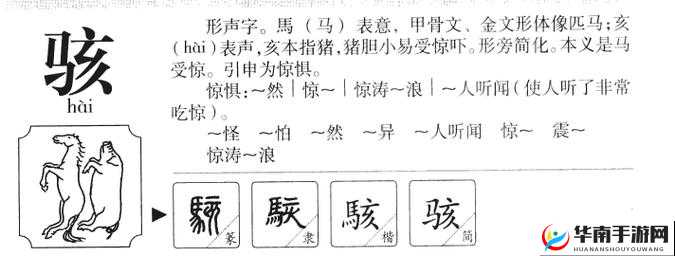 骇
hài
形声字。馬（马）表意，甲骨文、金文形体像匹马；亥
(hài)表声，亥本指猪，猪胆小易受惊吓。形旁简化。本义是马
受惊。引申为惊惧。
惊惧：～然｜惊～｜惊涛～浪｜～人听闻（使人听了非常
吃惊）。
～怪 ～怕 ～然 ～异 ～人听闻 惊～ 震～
惊涛～浪
駭 篆
駭 隶
駭 楷
骇 简
华南手游网
HUANANSHOUYOUWANG